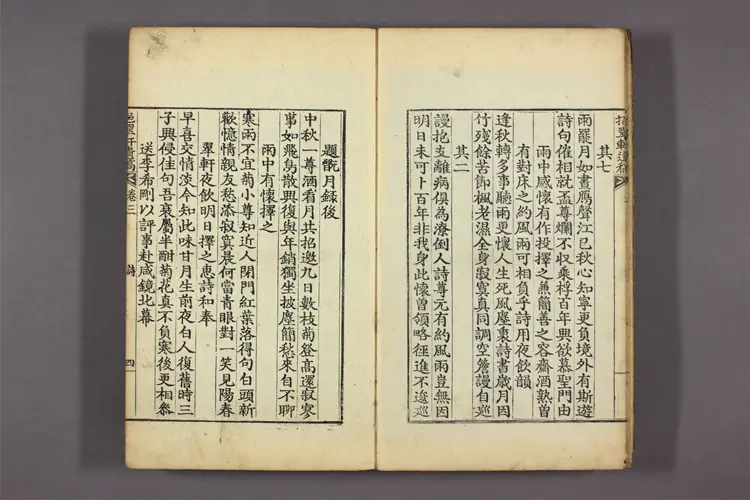 其七
雨罷月如晝鴈聲江已秋心知寧更負境外有斯遊
詩句催相就盃尊爛不收乘桴百年興欲慕聖門由
雨中感懷有作投擇之兼簡善之容齋酒熟曽
有對床之約風雨可相負乎詩用夜飮韻
逢秋轉多事聽雨更懷人生死風塵裏詩書歲月因
竹殘餘苦節楓老濕全身寂寞真同調空簷謾自巡
其二
謾抱支離病俱為潦倒人詩尊元有約風雨豈無因
明日未可卜百年非我身此懷曽領略徑進不逡巡
題翫月録後
中秋一尊酒看月共招邀九日數枝菊登高還寂寥
事如飛鳥散興復與年銷獨坐披塵簡愁來自不聊
雨中有懷擇之
寒雨不宜菊小尊知近人閉門紅葉落得句白頭新
歡憶情親友愁添寂寞晨何當青眼對一笑見陽春
翠軒夜飮明日擇之惠詩和奉
早喜交情淡今知此味甘月生前夜白人復舊時三
子興侵佳句吾衰屬半酣菊花真不負寒後更相叅
送李希剛以評事赴咸鏡北幕
卷三
詩
四